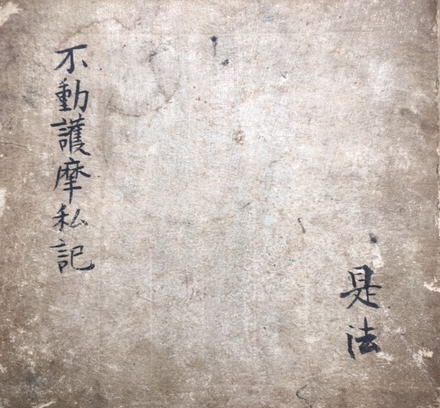 不動護摩私記
是法